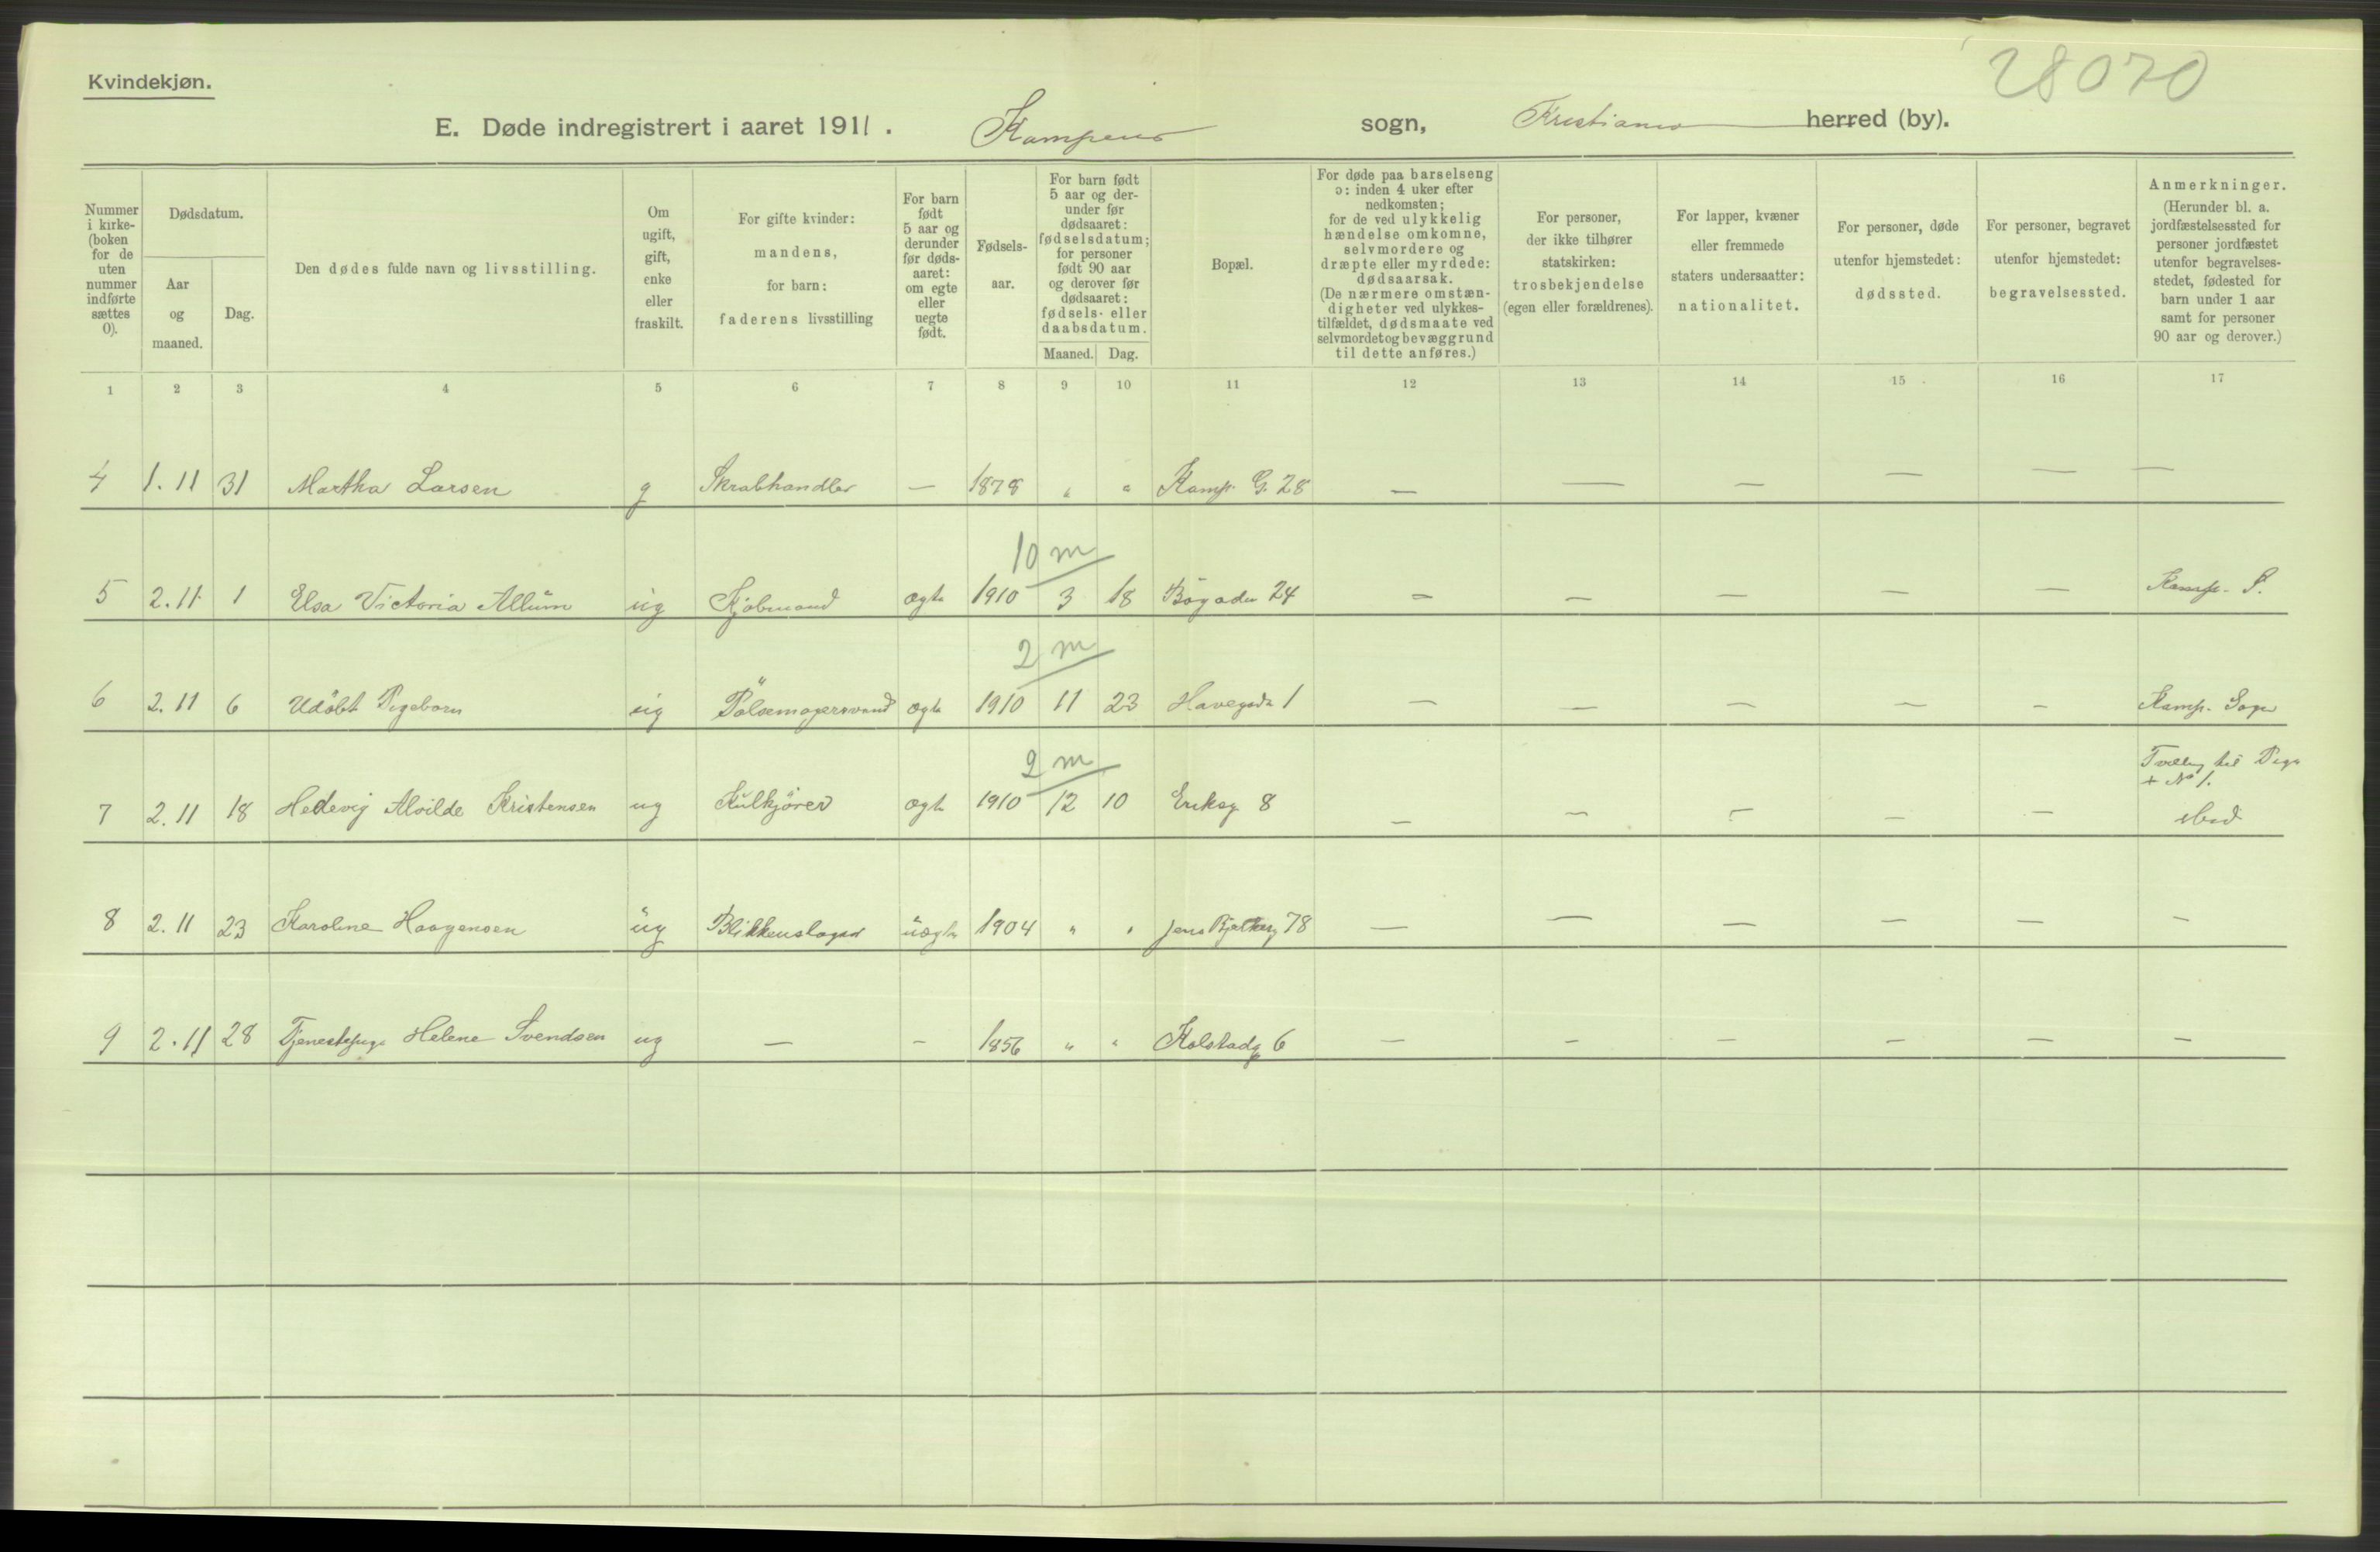 28070
Kvindekjøn.
E. Døde indregistrert i aaret 1911. Kampens sogn, Kristiania herred (by).
Nummer i kirke- (boken for de uten nummer indførte sættes 0).
Dødsdatum.
Aar og maaned.
Dag.
Den dødes fulde navn og livsstilling.
Om ugift, gift, enke eller fraskilt.
For gifte kvinder: mandens, for barn: faderens livsstilling
For barn født 5 aar og derunder før døds- aaret: om egte eller uegte født.
Fødsels- aar.
For barn født 5 aar og der- under før dødsaaret: fødselsdatum; for personer født 90 aar og derover før dødsaaret: fødsels- eller daabsdatum.
Maaned. Dag.
Bopæl.
For døde paa barselseng ɔ: inden 4 uker efter nedkomsten; for de ved ulykkelig hændelse omkomne, selvmordere og dræpte eller myrdede: dødsaarsak. (De nærmere omstæn- digheter ved ulykkes- tilfældet, dødsmaate ved selvmordet og bevæggrund til dette anføres.)
For personer, der ikke tilhører statskirken: trosbekjendelse (egen eller forældrenes).
For lapper, kvæner eller fremmede staters undersaatter: nationalitet.
For personer, døde utenfor hjemstedet: dødssted.
For personer, begravet utenfor hjemstedet: begravelsessted.
Anmerkninger. (Herunder bl. a. jordfæstelsessted for personer jordfæstet utenfor begravelses- stedet, fødested for barn under 1 aar samt for personer 90 aar og derover.)
1 2 3 4 5 6 7 8 9 10 11 12 13 14 15 16 17
4 1.11 31 Martha Larsen g Skrabhandler — 1878 " " Kamp. G. 28 — — — — — —
10 m
5 2.11 1 Elsa Victoria Allum ug Kjøbmand ægte 1910 3 18 Bøgaden 24 — — — — — Kamp. S.
2 m
6 2.11 6 Udöbt Pigebarn ug Pölsemagersvend ægte 1910 11 23 Havegada 1 — — — — — Kamp. Sogn
2 m
Tvilling til Pige
+ No 1.
7 2.11 18 Hedevig Alvilde Kristensen ug Kulkjörer ægte 1910 12 10 Eriksg 8 — — — — — ibid
8 2.11 23 Karoline Haagensen ug Blikkenslager uægte 1904 " " Jens Bjelkesg 78 — — — — — —
9 2.11 28 Tjenestepige Helene Svendsen ug — — 1856 " " Kolstadg 6 — — — — — —